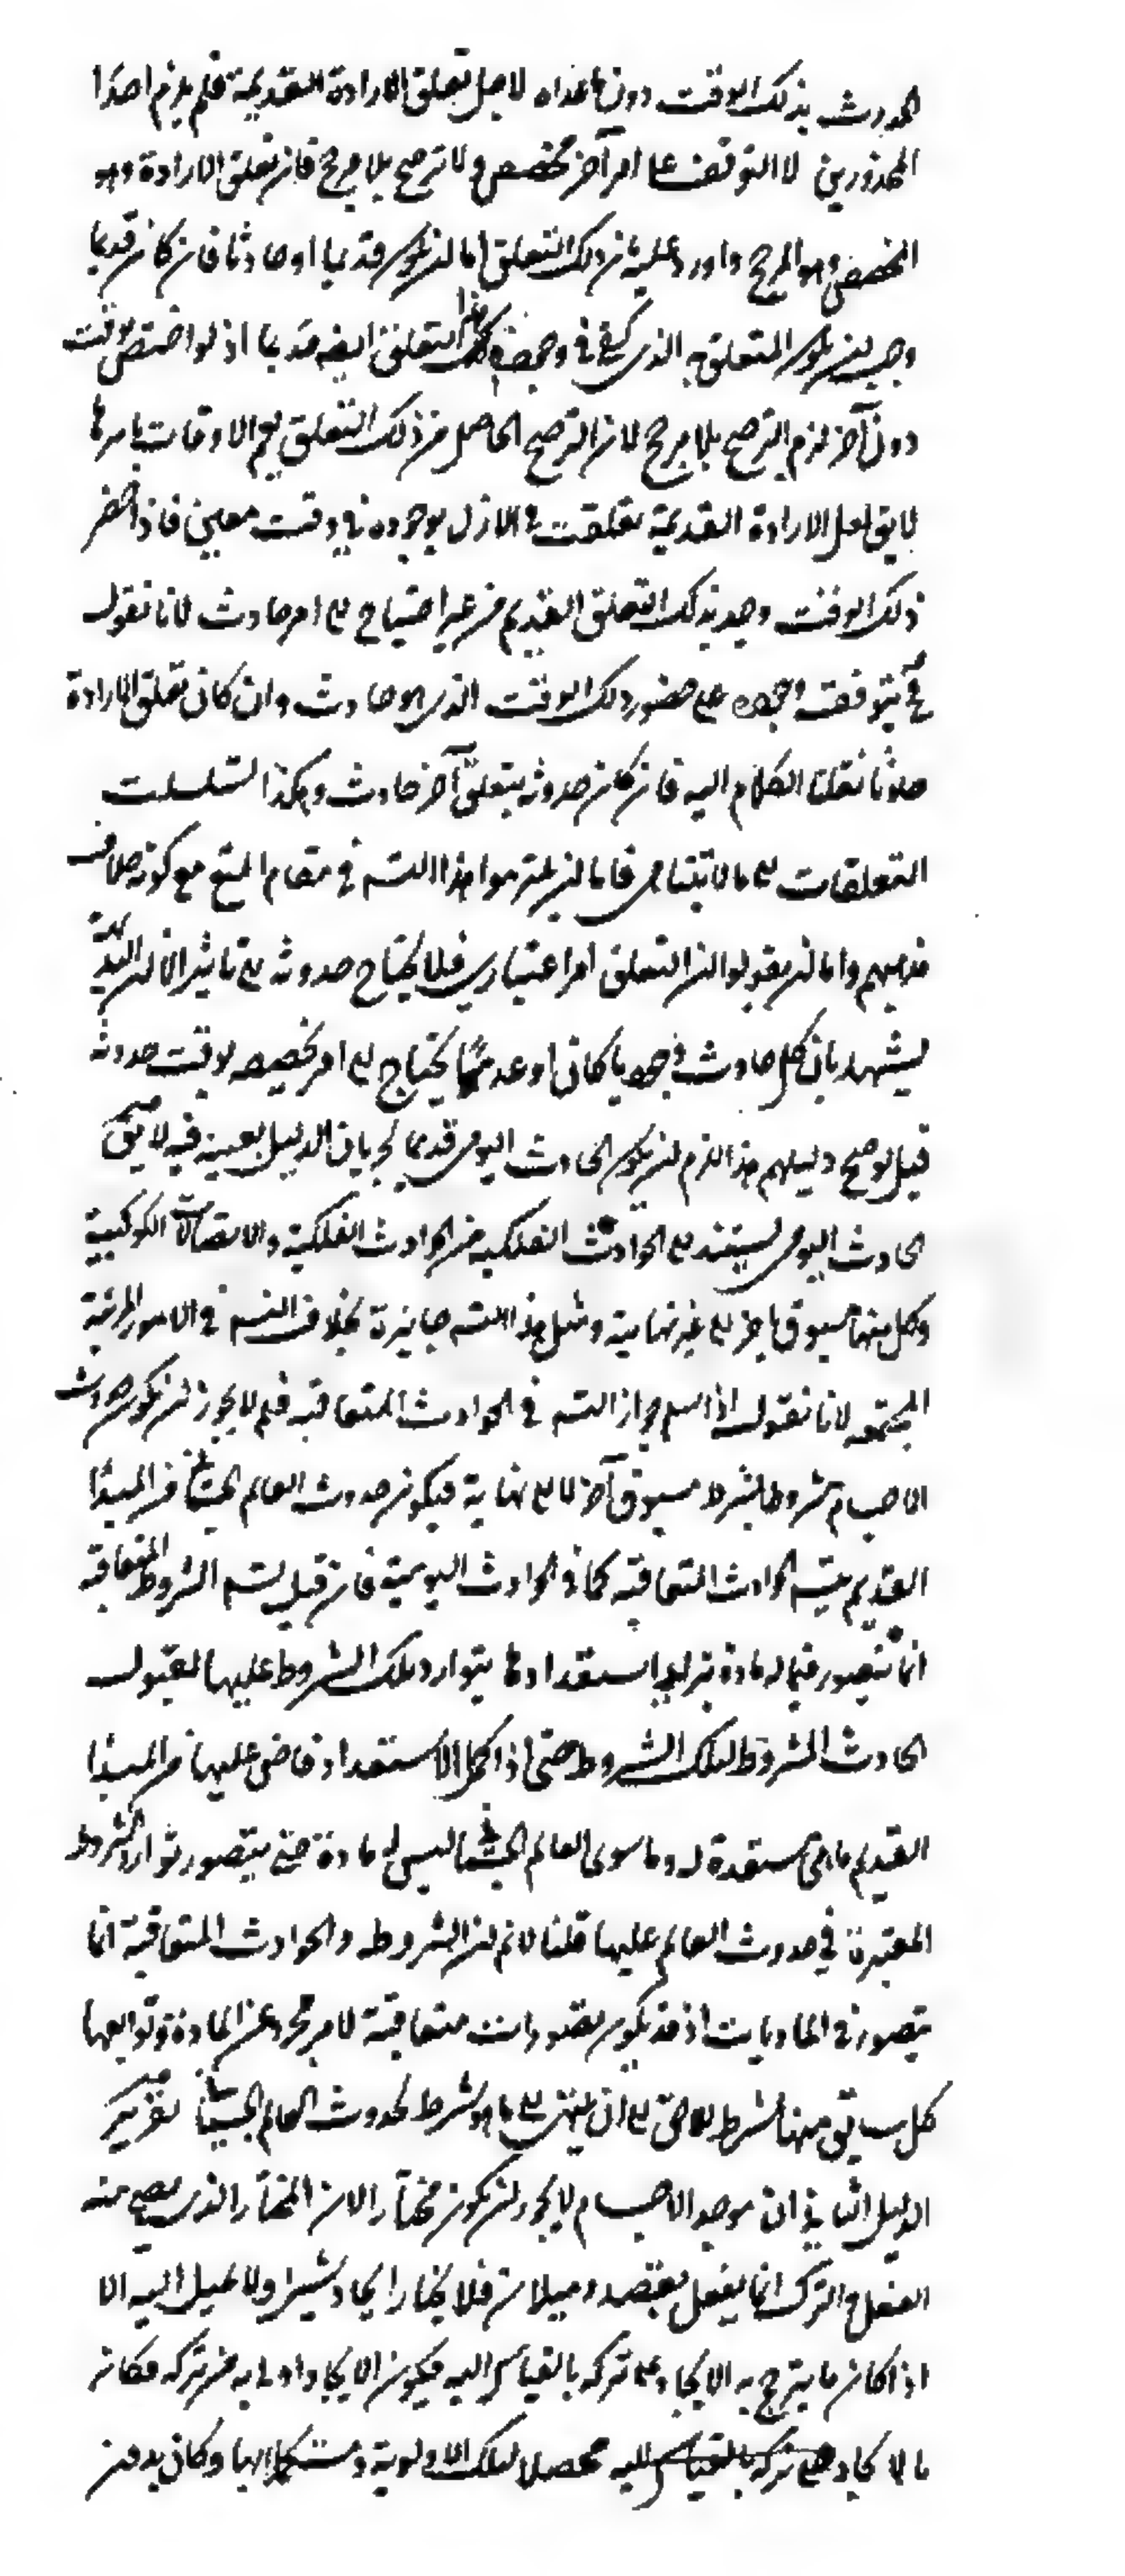 الحدوث بذلك الوقت دون ما عداه لاجل تعلق الارادة القديمة فلم يلزم احد
المحذورين لا التوقف على امر آخر مخصص ولا ترجيح بلا مرجح فان تعلق الارادة هو
المخصص وهو المرجح واورد عليه ان ذلك التعلق اما ان يكون قديما او حادثا فان كان قديما
وجب ان يكون المتعلق به الذي يكفي في وجوده ذلك التعلق ايضا قديما اذ لو اختص بوقت
دون آخر لزم الترجيح بلا مرجح لان الترجيح الحاصل من ذلك التعلق يعم الاوقات باسرها
لا يق لعل الارادة القديمة تعلقت في الازل بوجوده في وقت معين فاذا حضر
ذلك الوقت وجد بذلك التعلق القديم من غير احتياج الى امر حادث لانا نقول
فح يتوقف وجوده على حضور ذلك الوقت الذي هو حادث وان كان تعلق الارادة
حادثا نقلنا الكلام اليه فان كان حدوثه بتعلق آخر حادث وهكذا تسلسلت
التعلقات الى ما لا يتناهى فاما ان يلتزموا هذا التسه في مقام المنع مع كونه خلاف
مذهبهم واما ان يقولوا ان التعلق امر اعتباري فلا يحتاج حدوثه الى تاثير الا ان البديهة
تشهد بان كل حادث وجوديا كان او عدميا يحتاج الى امر يخصصه لوقت حدوثه
قيل لو صح دليلهم هذا لزم ان يكون الحادث اليومي قديما لجريان الدليل بعينه فيه لا يق
الحادث اليومي يستند الى الحوادث الفلكية من الحوادث الفلكية والاتصالات الكوكبية
وكل منها مسبوق باخر الى غير نهاية ومثل هذا التسه جائزة بخلاف التسه في الامور المرتبة
المجتمعه لانا نقول اذا سلم جواز التسه في الحوادث المتعاقبه فلم لا يجوز ان يكون حدوث
الاجسام مشروطا بشرط مسبوق آخر لا الى نهاية فيكون حدوث العالم الجسماني من المبدأ
القديم بتسه الحوادث المتعاقبه كما في الحوادث اليومية فان قيل تسه الشروط المتعاقبه
انما يتصور فيما له مادة يتزايد استعدادها بتوارد تلك الشروط عليها لقبول
الحادث المشروط لتلك الشروط حتى اذا كمل الاستعداد فاض عليها من المبدأ
القديم ما هي مستعدة له وما سوى العالم الجسماني ليس له مادة حتى يتصور توارد الشروط
المعتبرة في حدوث العالم عليها قلنا لا نم ان الشروط والحوادث المتعاقبة انما
يتصور في الماديات اذ قد يكون تصورات متعاقبة لامر مجرد عن المادة وتوابعها
كل سابق منها شرط للاحق الى ان ينتهي الى ما هو شرط لحدوث العالم الجسماني تقرير
الدليل الثاني ان موجد الاجسام لا يجوز ان يكون مختارا لان المختار الذي يصح منه
الفعل والترك انما يفعل بقصد وميلان فلا يختار ايجاد شيئ ولا يميل اليه الا
اذا كان ما يترجح به الايجاد على تركه بالقياس اليه فيكون الايجاد اولى به من تركه فكان
بالايجاد محصلا لتلك الاولوية ومستكملا بها وكان بدون